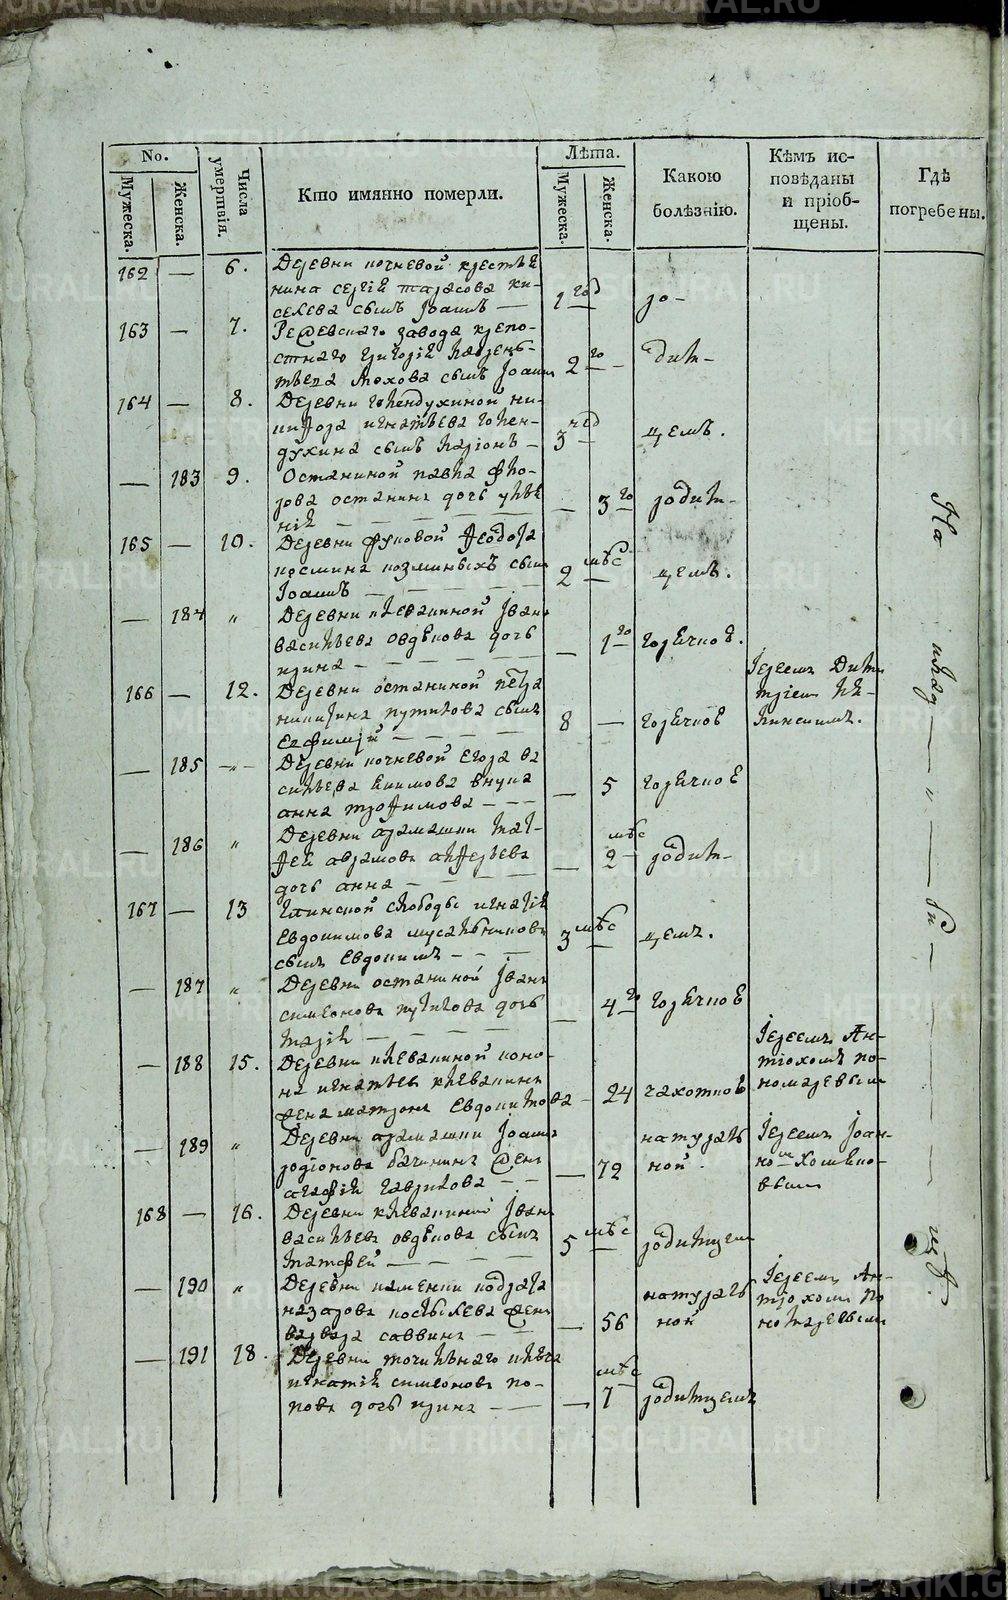 No.
Мужеска.
Женска.
Числа умертвія.
Кто имянно померли.
Лѣта.
Мужеска.
Женска.
Какою болѣзнію.
Кѣмъ исповѣданы и пріобщены.
Гдѣ погребены.
162 — 6. Деревни почневой крестья
нина сергія тарасова ки-
селева сынъ Іоаннъ — 1 год ро-
163 — 7. Режевскаго завода крепо-
стнаго григорія
сынъ Іоаннъ 2 го — дим-
164 — 8. Деревни голендухиной ни-
кифора игнатьева голен-
духина сынъ ларіонъ — 3 нед цемъ.
— 183 9. Останиной павла фло-
рова останина дочь улья-
нія — — 3 го родим-
165 — 10. Деревни Феодора
козмина козминыхъ сынъ
Іоаннъ — 2 мѣс — цемъ.
— 184 „ Деревни клевакиной Ивана
васильева овдѣнова дочь
ирина — — 1 го горячкою.
166 — 12. Деревни останиной петра
никитина путилова сынъ
Евфимій — 8 — горячкою
Іереемъ Дими
тріемъ
185 — „ — Деревни почневой Егора ва
сильева внука
анна трофимова — — 5 горячкою
— 186 „ Деревни арамашки мат-
фея аврамова алферьева
дочь анна — — 2 мѣс родим-
167 — 13 Глинской слободы игнатія
Евдокимова мусальникова
сынъ Евдокимъ — 3 мѣс — цемъ.
— 187 „ Деревни останиной Ивана
симеонова путилова дочь
марія — — 4 го горячкою
— 188 15. Деревни клевакиной коно-
на игнатьева клевакина
жена матрона Евдокимова — 24 чахоткою
Іереемъ Ан-
тіохомъ по-
номаревымъ
— 189 „ Деревни арамашки Іоанна
родіонова бачинина жена
агафія гаврилова — — 72 натураль
ной.
Іереемъ Іоан-
номъ Хомяко-
вымъ
168 — 16. Деревни клевакиной Ивана
васильева овдѣнова сынъ
матфей — 5 мѣс — родимцемъ
— 190 „ Деревни каменки кодрата
назарова костылева жена
варвара саввина — — 56 натураль
ной
Іереемъ Ан-
тіохомъ по
номаревымъ
— 191 18. Деревни точильнаго ключа
игнатія симеонова по-
пова дочь ирина — — 7 мѣс родимцемъ
На клад — и — би — щѣ.
METRIKI.GASO-URAL.RU